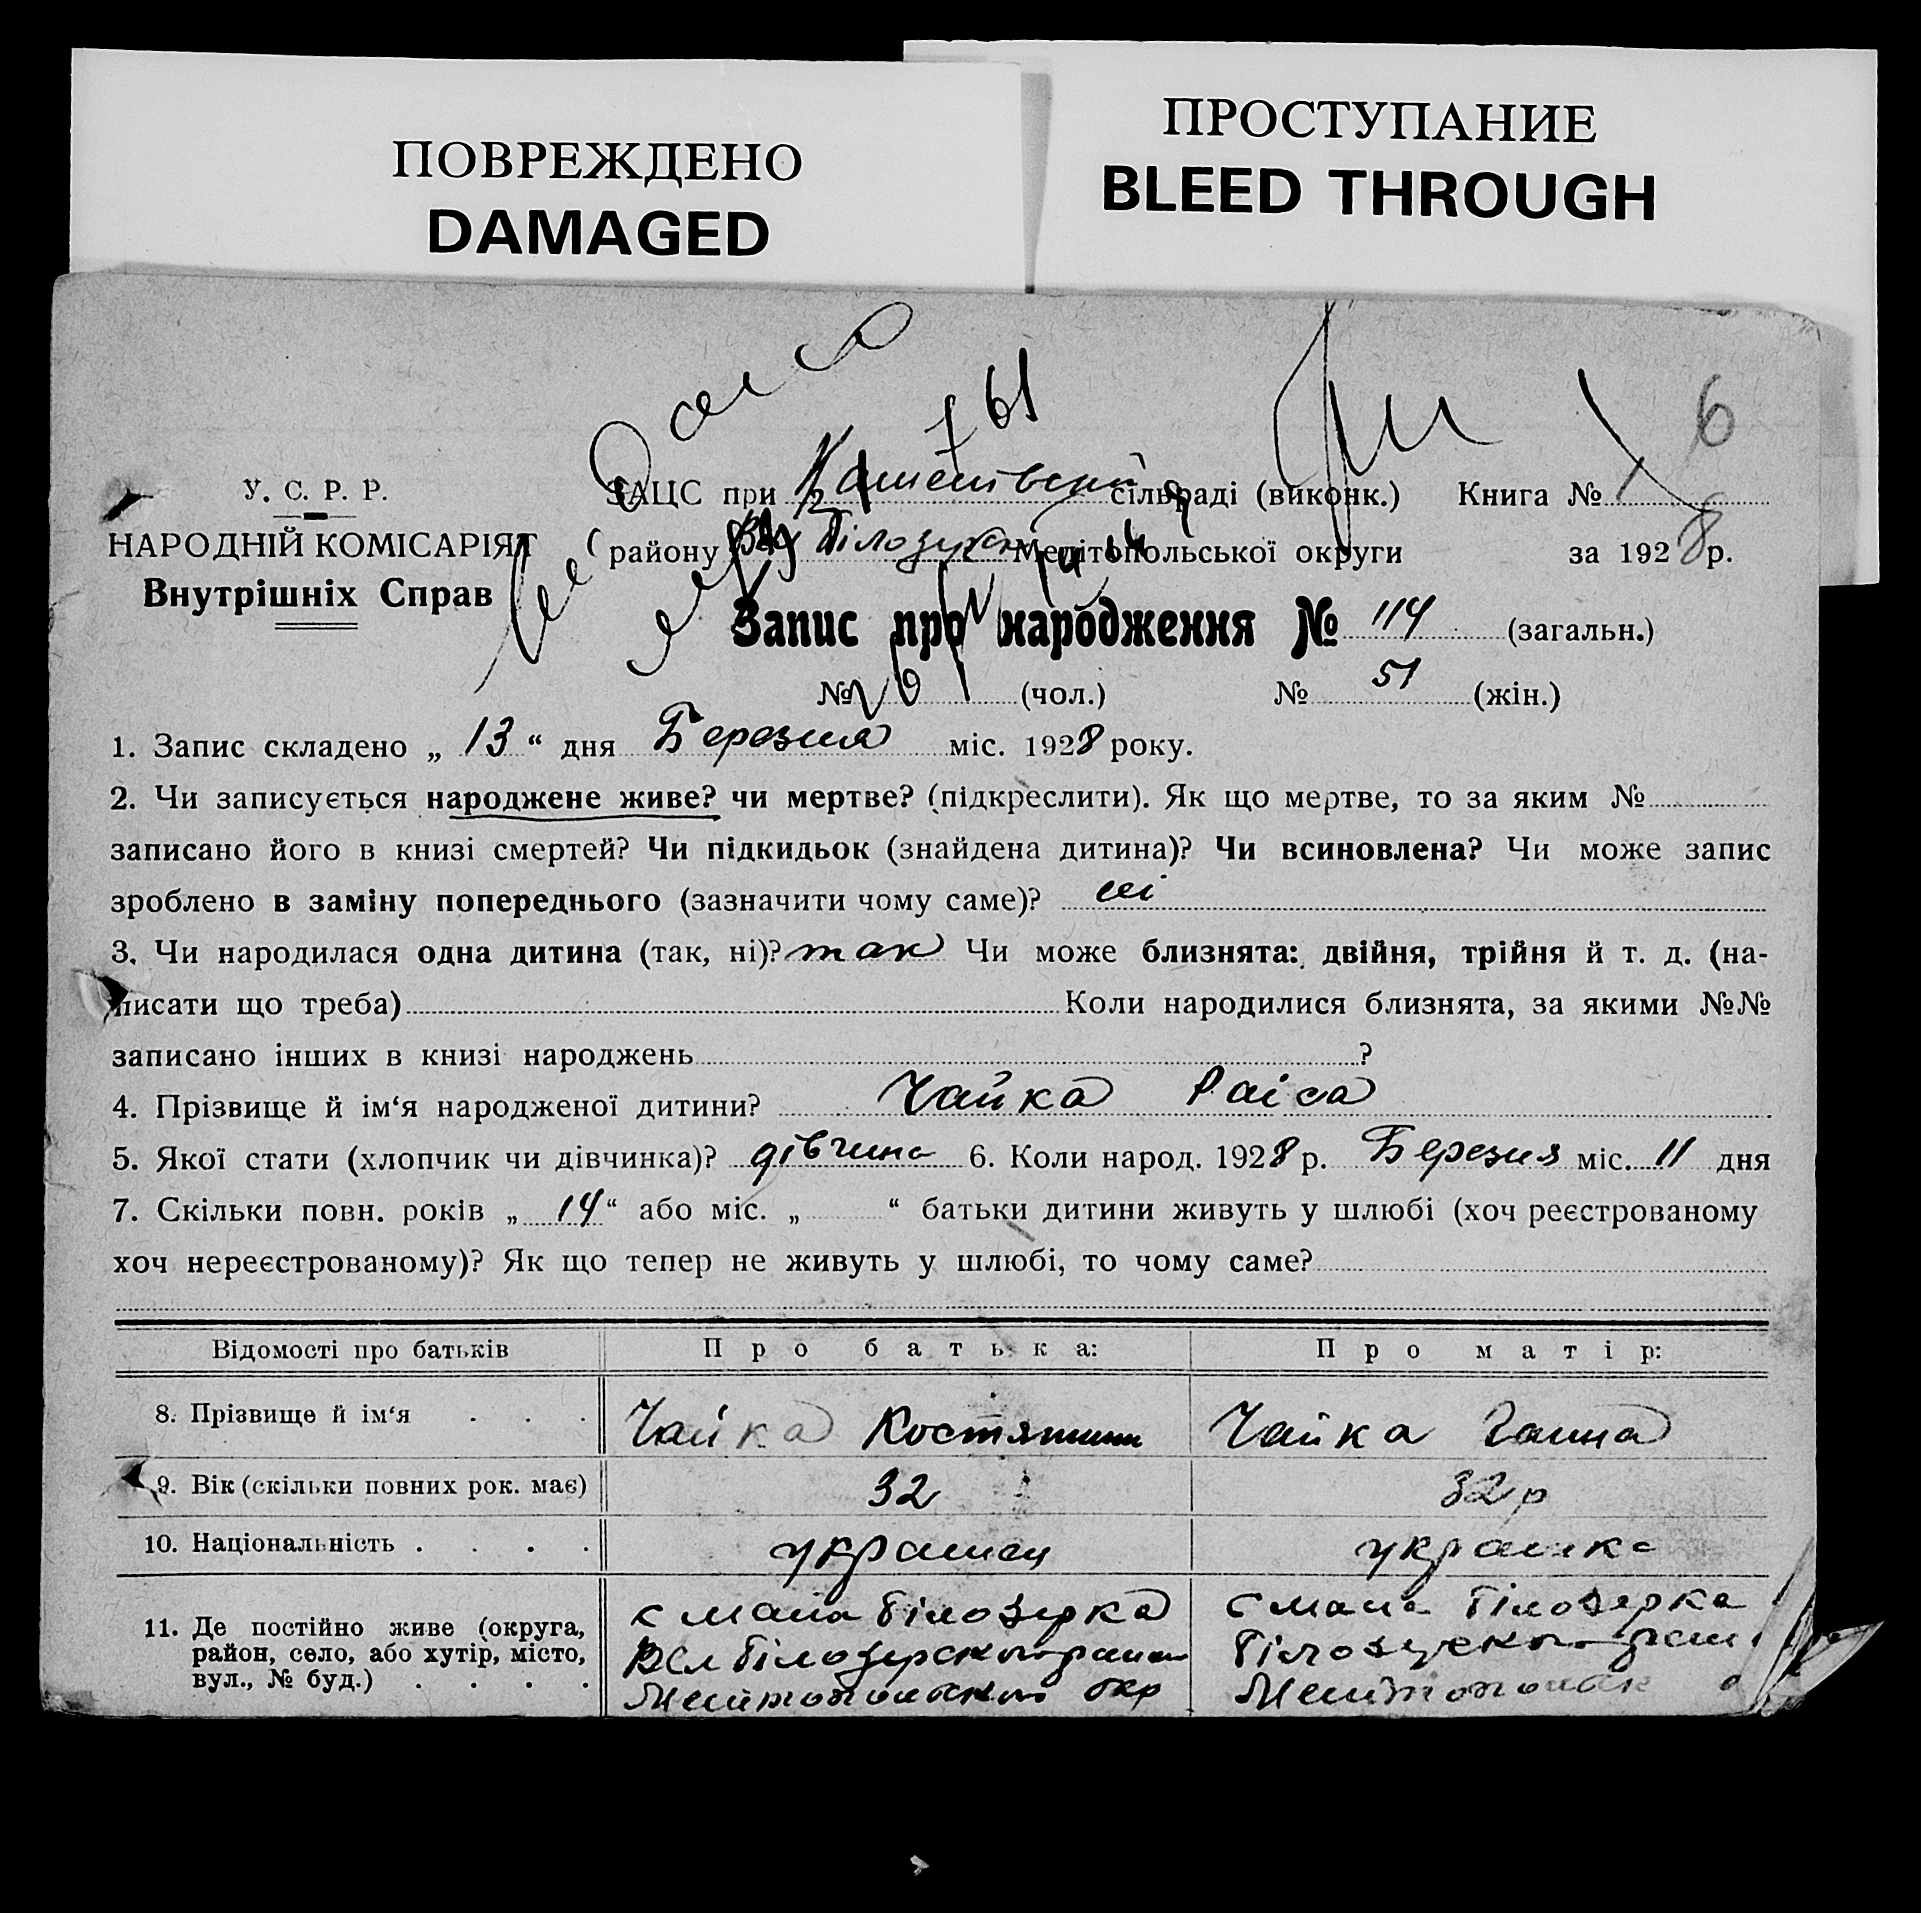 ПОВРЕЖДЕНО
DAMAGED
ПРОСТУПАНИЕ
BLEED THROUGH
6
У. С. Р. Р.
НАРОДНІЙ КОМІСАРІЯТ
Внутрішніх Справ
ЗАЦС при сільраді (виконк.) Книга № 1
району Білозерськ Мелітопольської округи за 1928 р.
Запис про народження № 114 (загальн.)
№ (чол.) № 51 (жін.)
1. Запис складено „ 13 “ дня Березня міс. 1928 року.
2. Чи записується народжене живе? чи мертве? (підкреслити). Як що мертве, то за яким №
записано його в книзі смертей? Чи підкидьок (знайдена дитина)? Чи всиновлена? Чи може запис
зроблено в заміну попереднього (зазначити чому саме)? ні
3. Чи народилася одна дитина (так, ні)? так Чи може близнята: двійня, трійня й т. д. (на-
писати що треба) Коли народилися близнята, за якими №№
записано інших в книзі народжень ?
4. Прізвище й ім‘я народженої дитини? Чайка Раіса
5. Якої стати (хлопчик чи дівчинка)? дівчина 6. Коли народ. 1928 р. Березня міс. 11 дня
7. Скільки повн. років „ 14 “ або міс. „ “ батьки дитини живуть у шлюбі (хоч реєстрованому
хоч нереєстрованому)? Як що тепер не живуть у шлюбі, то чому саме?
Відомості про батьків Про батька: Про матір:
8. Прізвище й ім‘я . . . Чайка Костянтин Чайка Ганна
9. Вік (скільки повних рок. має) 32 32 р
10. Національність . . . . українец українка
11. Де постійно живе (округа, район, село, або хутір, місто, вул., № буд.) . . . .
с Мала Білозерка
Вел Білозерського району
Мелітопольської окр
с Мала Білозерка
Білозерського рай
Мелітопольськ о